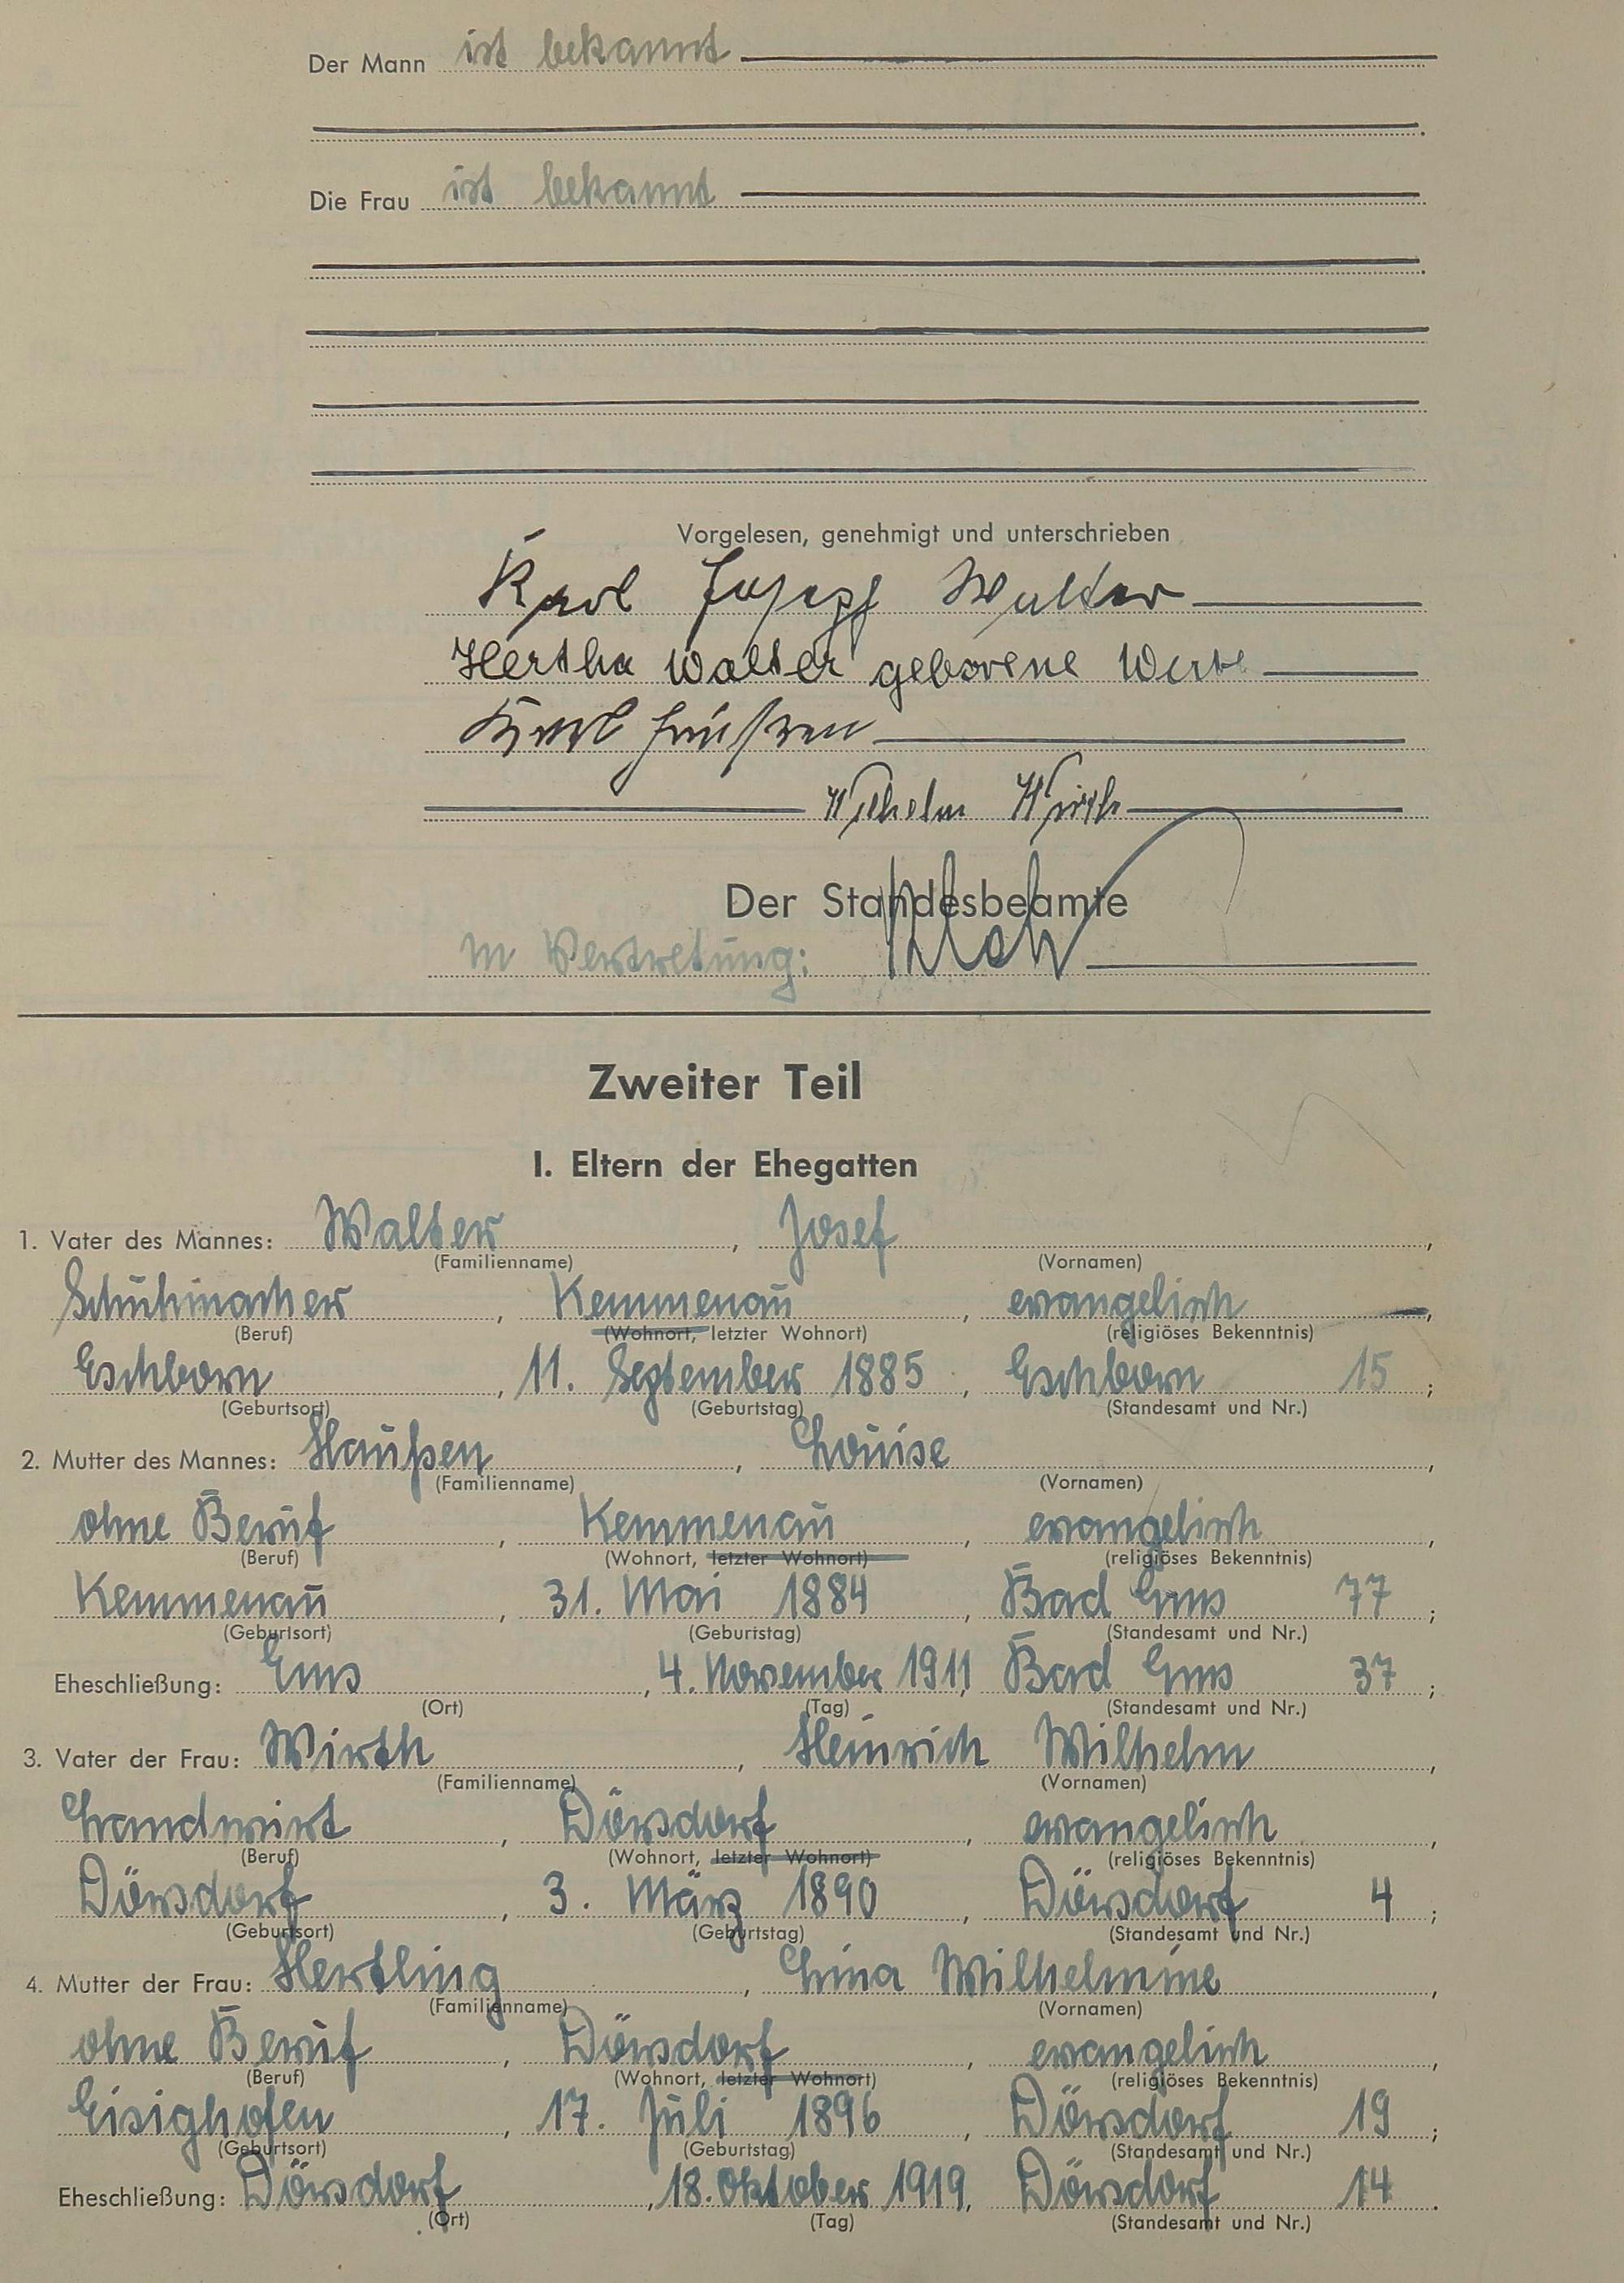 Der Mann ist bekannt
Die Frau ist bekannt
Vorgelesen, genehmigt und unterschrieben
Karl Josepf Walter
Hertha Walter geborene
Karl
Wilhelm Wirth
Der Standesbeamte
In Vertretung:
Zweiter Teil
I. Eltern der Ehegatten
1. Vater des Mannes: Walter, Josef,
(Familienname) (Vornamen)
Schuhmacher, Kemmenau, evangelisch,
(Beruf) (Wohnort, letzter Wohnort) (religiöses Bekenntnis)
Eschborn, 11. September 1885, Eschborn 15;
(Geburtsort) (Geburtstag) (Standesamt und Nr.)
2. Mutter des Mannes: Haußen, Louise,
(Familienname) (Vornamen)
ohne Beruf, Kemmenau, evangelisch,
(Beruf) (Wohnort, letzter Wohnort) (religiöses Bekenntnis)
Kemmenau, 31. Mai 1884, Bad Ems 77;
(Geburtsort) (Geburtstag) (Standesamt und Nr.)
Eheschließung: Ems, 4. November 1911, Bad Ems 37;
(Ort) (Tag) (Standesamt und Nr.)
3. Vater der Frau: Wirth, Heinrich Wilhelm,
(Familienname) (Vornamen)
Landwirt, Dörsdorf, evangelisch,
(Beruf) (Wohnort, letzter Wohnort) (religiöses Bekenntnis)
Dörsdorf, 3. März 1890, Dörsdorf 4;
(Geburtsort) (Geburtstag) (Standesamt und Nr.)
4. Mutter der Frau: Hertling, Lina Wilhelmine,
(Familienname) (Vornamen)
ohne Beruf, Dörsdorf, evangelisch,
(Beruf) (Wohnort, letzter Wohnort) (religiöses Bekenntnis)
Eisighofen, 17. Juli 1896, Dörsdorf 19;
(Geburtsort) (Geburtstag) (Standesamt und Nr.)
Eheschließung: Dörsdorf, 18. Oktober 1919, Dörsdorf 14.
(Ort) (Tag) (Standesamt und Nr.)